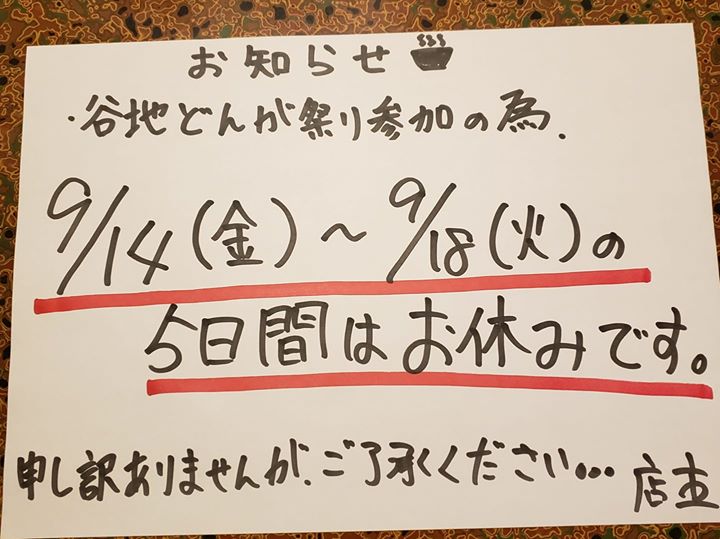 お知らせ
・谷地どんが祭り参加の為、
9/14(金)～9/18(火)の
5日間はお休みです。
申し訳ありませんが、ご了承ください… 店主